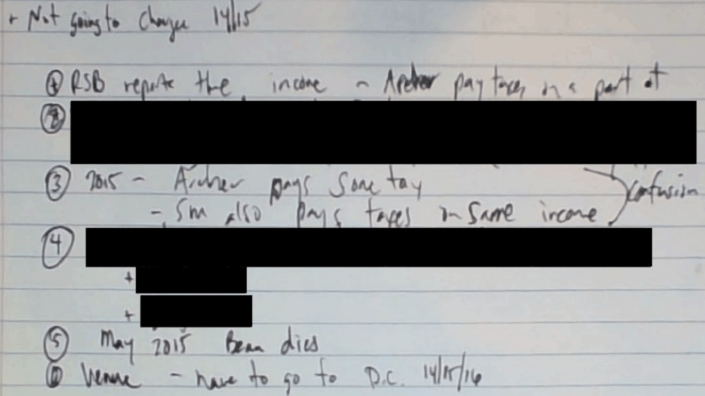 + Not going to charge 14/15
① RSB reports the income - Archer pay taxes on a part of
②
③ 2015 - Archer pays some tax
- SM also pays taxes on same income } confusion
④
+
+
⑤ May 2015 Beau dies
⑥ Venue - have to go to D.C. 14/15/16